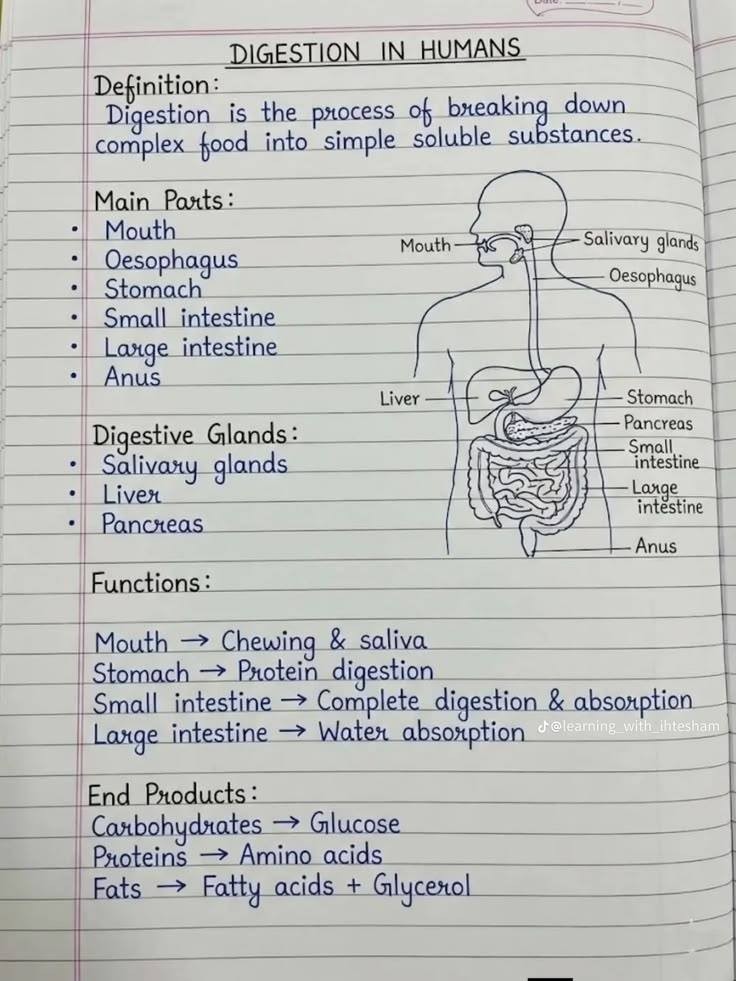 Date:
DIGESTION IN HUMANS
Definition:
Digestion is the process of breaking down
complex food into simple soluble substances.
Main Parts:
• Mouth
• Oesophagus
• Stomach
• Small intestine
• Large intestine
• Anus
Mouth
Salivary glands
Oesophagus
Liver
Stomach
Pancreas
Small
intestine
Large
intestine
Anus
Digestive Glands:
• Salivary glands
• Liver
• Pancreas
Functions:
Mouth → Chewing & saliva
Stomach → Protein digestion
Small intestine → Complete digestion & absorption
Large intestine → Water absorption
@learning_with_ihtesham
End Products:
Carbohydrates → Glucose
Proteins → Amino acids
Fats → Fatty acids + Glycerol